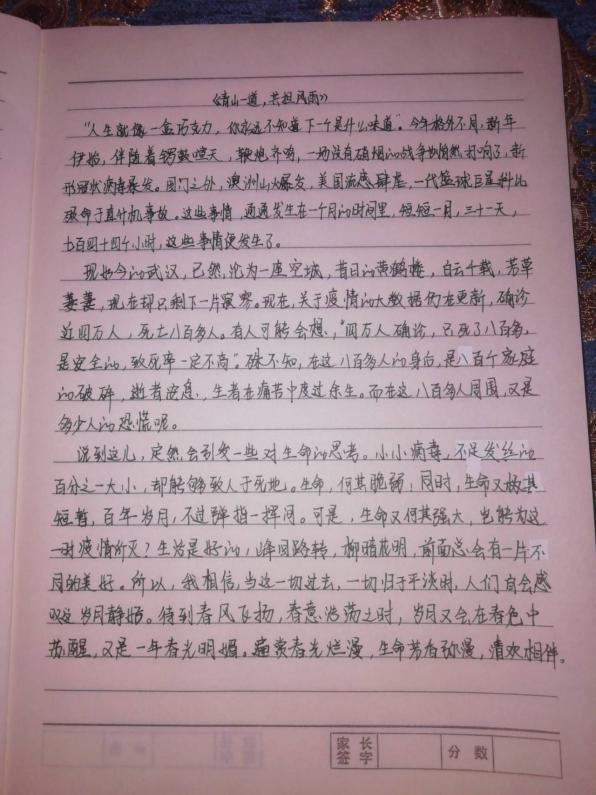 《青山一道，共担风雨》
“人生就像一盒巧克力，你永远不知道下一个是什么味道”。今年格外不同，新年
伊始，伴随着锣鼓喧天，鞭炮齐鸣，一场没有硝烟的战争悄然打响了，新
形冠状病毒爆发。国门之外，澳洲山火爆发，美国流感肆虐，一代篮球巨星科比
殒命于直升机事故。这些事情，通通发生在一个月的时间里，短短一月，三十一天，
七百四十四个小时，这些事情便发生了。
现如今的武汉，已然沦为一座空城，昔日的黄鹤楼，白云千载，芳草
萋萋，现在却只剩下一片寂寥。现在，关于疫情的大数据仍在更新，确诊
近四万人，死亡八百多人。有人可能会想，“四万人确诊，只死了八百多，
是安全的，致死率一定不高”。殊不知，在这八百多人的身后，是八百个家庭
的破碎，逝者安息，生者在痛苦中度过余生。而在这八百多人周围，又是
多少人的恐慌呢。
说到这儿，定然会引发一些对生命的思考。小小病毒，不足发丝的
百分之一大小，却能够致人于死地。生命，何其脆弱；同时，生命又极其
短暂，百年岁月，不过弹指一挥间。可是，生命又何其强大，岂能为这
一时疫情所灭？生活是好的，峰回路转，柳暗花明，前面总会有一片不
同的美好。所以，我相信，当这一切过去，一切归于平淡时，人们自会感
叹这岁月静好。待到春风飞扬，春意浩荡之时，岁月又会在春色中
苏醒，又是一年春光明媚。遍赏春光烂漫，生命芳香弥漫，清欢相伴。
家长
签字
分数